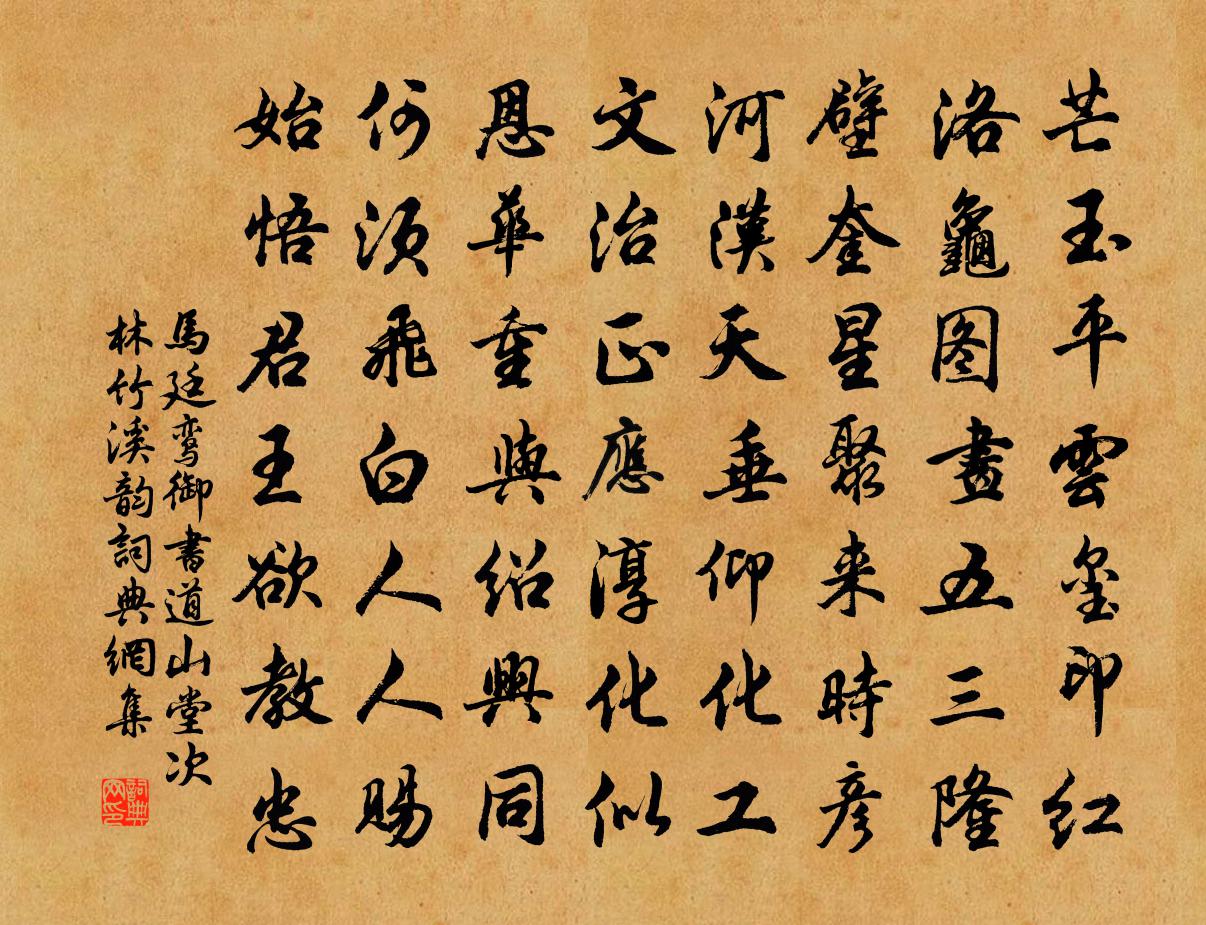 芒玉平雲玺印红
洛龜图畫五三隆
壁奎星聚来時彦
河漢天垂仰化工
文治正應淳化似
恩華重與绍興同
何须飛白人人賜
始悟君王欲教忠
馬廷鸾御書道山堂次
林竹溪韵詞典網集
詞典网印